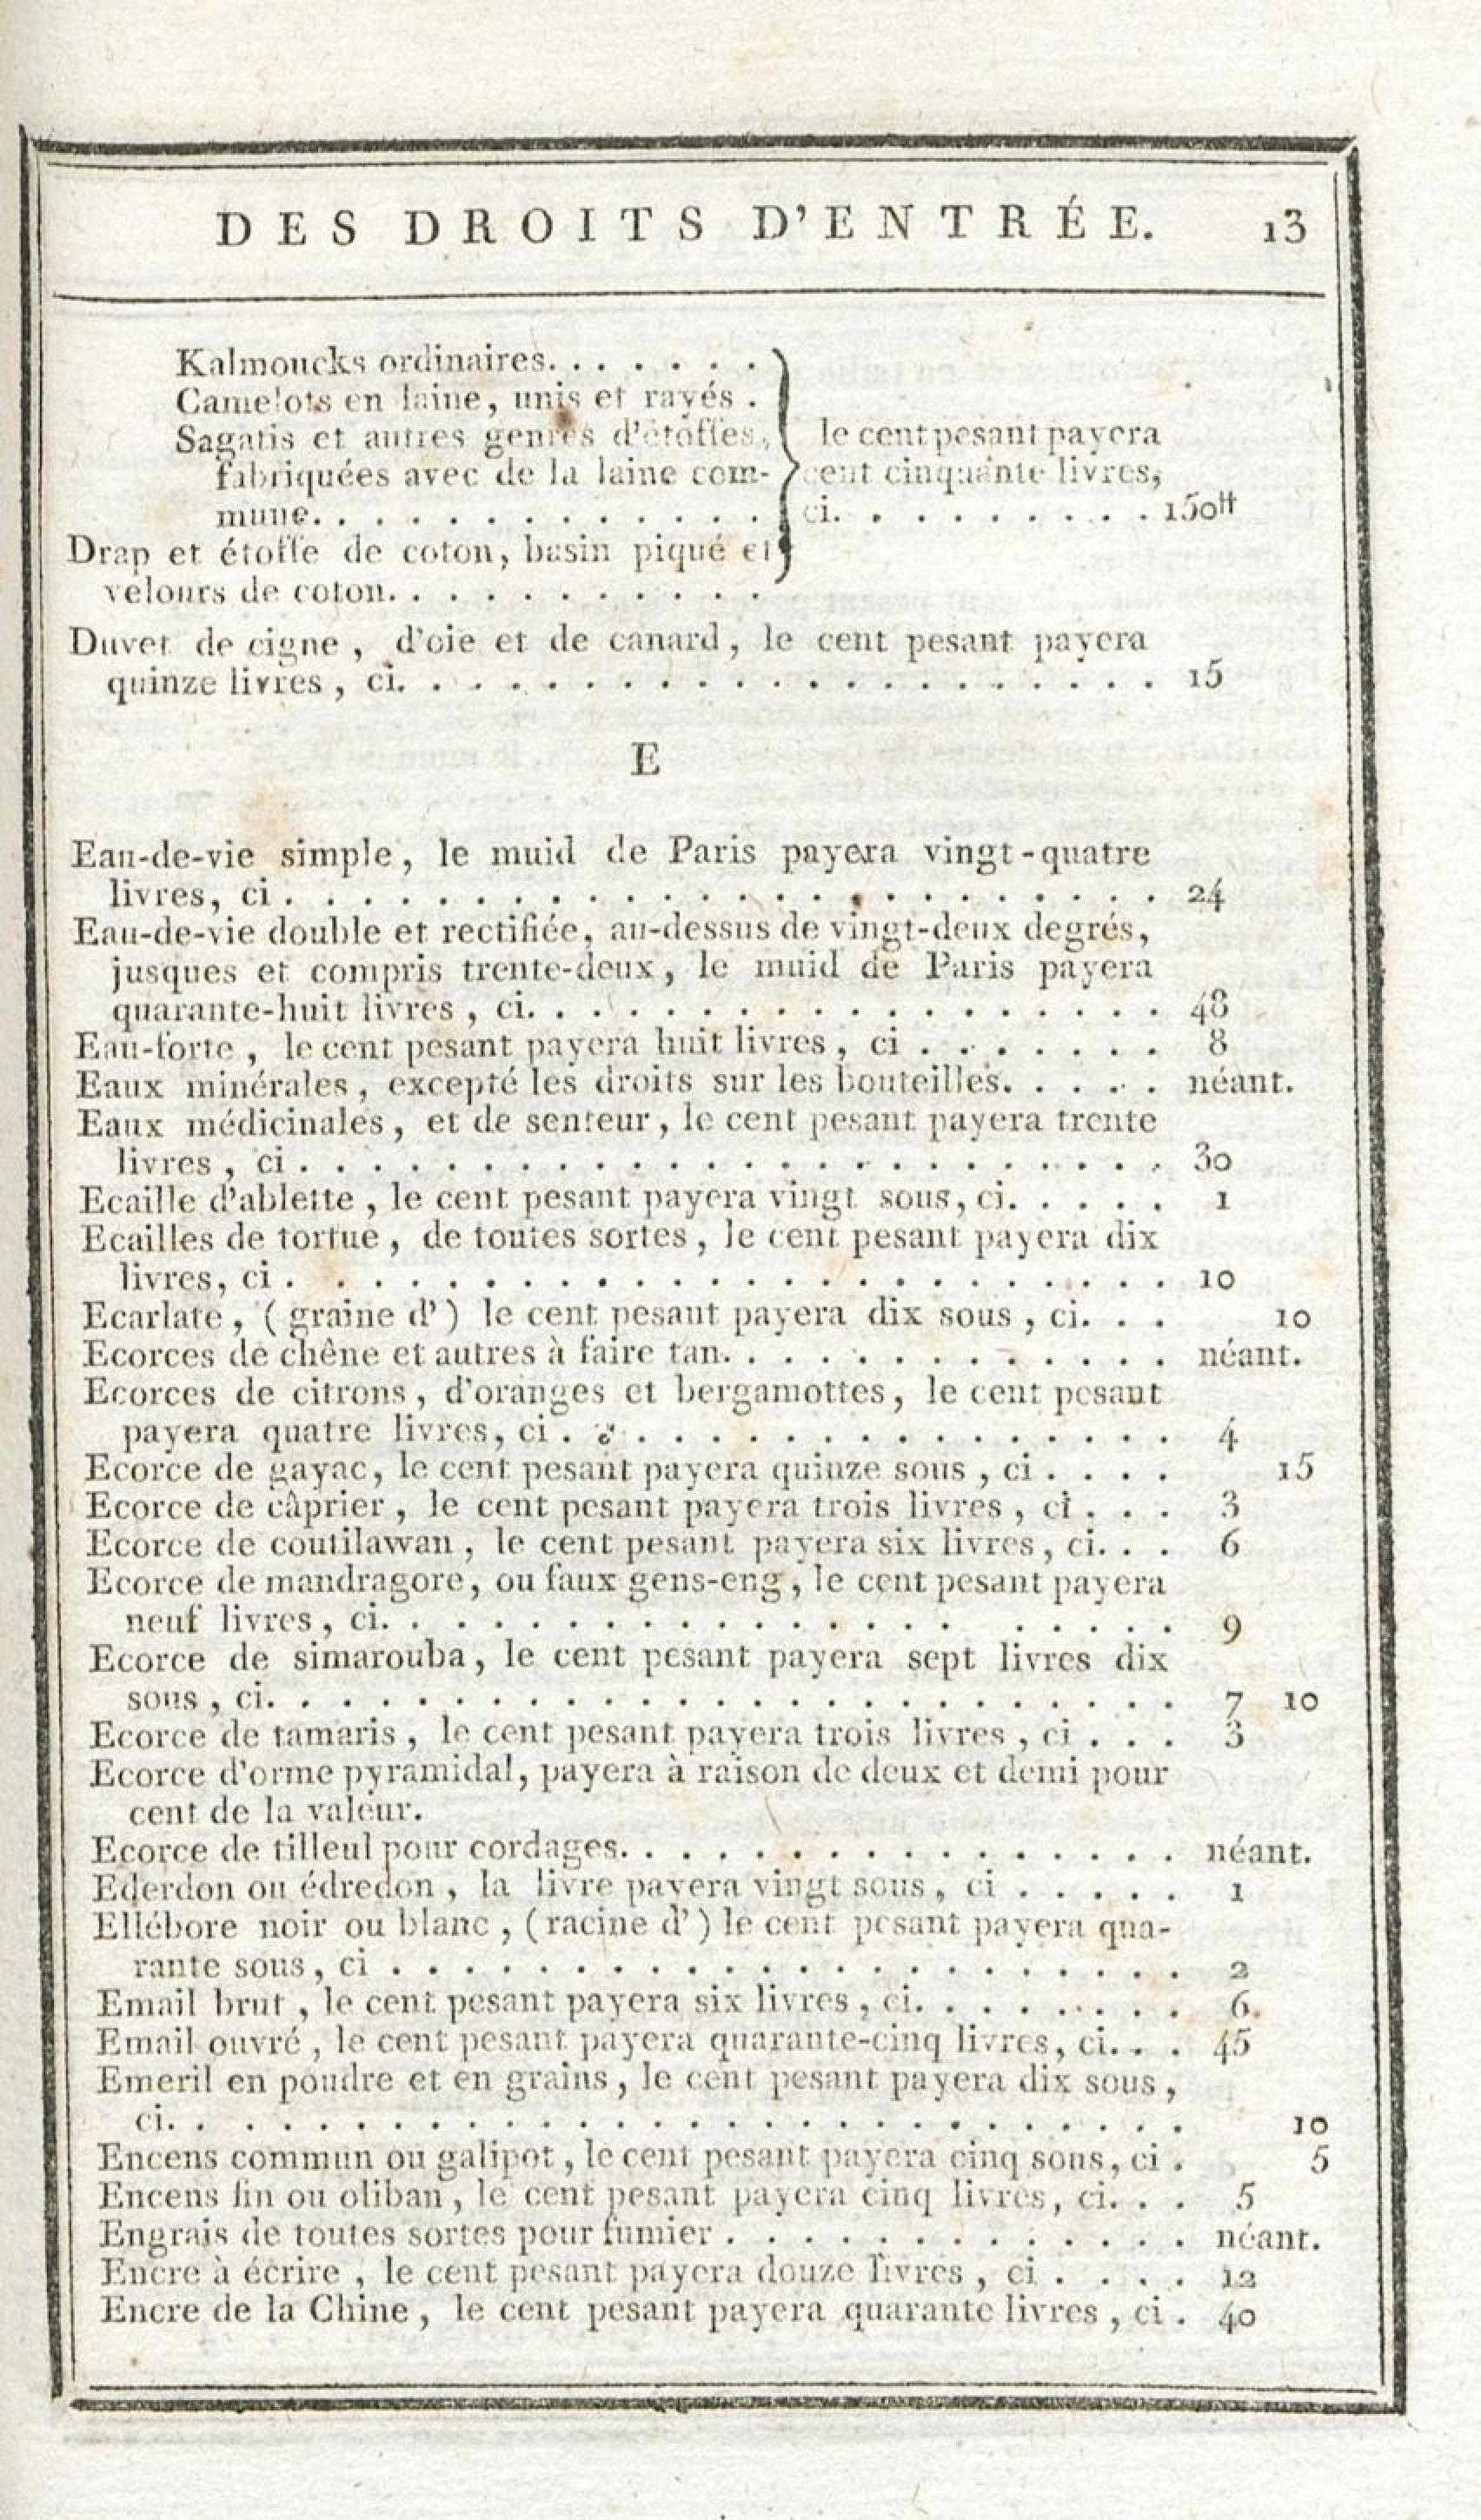 DES DROITS D'ENTRÉE. 13
Kalmoucks ordinaires. . . . . . .
Camelots en laine, unis et rayés .
Sagatis et autres genres d'étoffes,
fabriquées avec de la laine com-
mune. . . . . . . . . . . . .
Drap et étoffe de coton, basin piqué et
velours de coton. . . . . . . . . .
le cent pesant payera
cent cinquante livres,
ci. . . . . . . . . 150tt
Duvet de cigne , d'oie et de canard, le cent pesant payera
quinze livres , ci. . . . . . . . . . . . . . . . . . . . 15
E
Eau-de-vie simple, le muid de Paris payera vingt-quatre
livres, ci . . . . . . . . . . . . . . . . . . . . . . 24
Eau-de-vie double et rectifiée, au-dessus de vingt-deux degrés,
jusques et compris trente-deux, le muid de Paris payera
quarante-huit livres , ci. . . . . . . . . . . . . . . . . 48
Eau-forte , le cent pesant payera huit livres , ci . . . . . . . 8
Eaux minérales, excepté les droits sur les bouteilles. . . . . néant.
Eaux médicinales, et de senteur, le cent pesant payera trente
livres , ci . . . . . . . . . . . . . . . . . . . . . . . 30
Ecaille d'ablette , le cent pesant payera vingt sous, ci. . . . . 1
Ecailles de tortue , de toutes sortes , le cent pesant payera dix
livres, ci . . . . . . . . . . . . . . . . . . . . . . . 10
Ecarlate, ( graine d' ) le cent pesant payera dix sous , ci. . . 10
Ecorces de chêne et autres à faire tan. . . . . . . . . . . . néant.
Ecorces de citrons, d'oranges et bergamottes, le cent pesant
payera quatre livres, ci . . . . . . . . . . . . . . . . 4
Ecorce de gayac, le cent pesant payera quinze sous , ci . . . . 15
Ecorce de câprier , le cent pesant payera trois livres , ci . . . 3
Ecorce de coutilawan , le cent pesant payera six livres, ci. . . 6
Ecorce de mandragore, ou faux gens-eng, le cent pesant payera
neuf livres , ci. . . . . . . . . . . . . . . . . . . . . 9
Ecorce de simarouba, le cent pesant payera sept livres dix
sous , ci. . . . . . . . . . . . . . . . . . . . . . . . 7 10
Ecorce de tamaris , le cent pesant payera trois livres , ci . . . 3
Ecorce d'orme pyramidal, payera à raison de deux et demi pour
cent de la valeur.
Ecorce de tilleul pour cordages. . . . . . . . . . . . . . . néant.
Ederdon ou édredon , la livre payera vingt sous, ci . . . . . 1
Ellébore noir ou blanc , (racine d' ) le cent pesant payera qua-
rante sous , ci . . . . . . . . . . . . . . . . . . . . . 2
Email brut , le cent pesant payera six livres , ci. . . . . . . . 6.
Email ouvré , le cent pesant payera quarante-cinq livres, ci. . . 45
Emeril en poudre et en grains , le cent pesant payera dix sous ,
ci. . . . . . . . . . . . . . . . . . . . . . . . . . . 10
Encens commun ou galipot, le cent pesant payera cinq sous, ci . 5
Encens fin ou oliban, le cent pesant payera cinq livres, ci. . . 5
Engrais de toutes sortes pour fumier . . . . . . . . . . . . néant.
Encre à écrire , le cent pesant payera douze livres , ci . . . . 12
Encre de la Chine, le cent pesant payera quarante livres , ci . 40